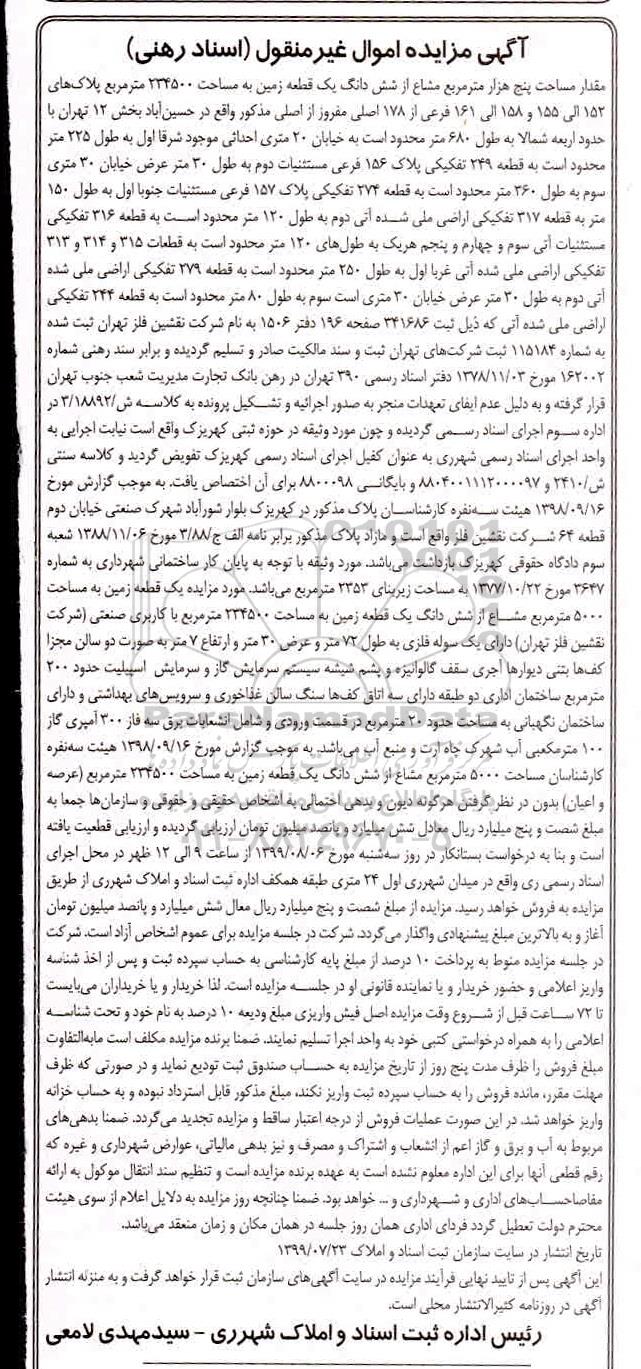 آگهی مزایده اموال غیرمنقول (اسناد رهنی)
مقدار مساحت پنج هزار مترمربع مشاع از شش دانگ یک قطعه زمین به مساحت ۲۳۴۵۰۰ مترمربع پلاک‌های
۱۵۲ الی ۱۵۵ و ۱۵۸ الی ۱۶۱ فرعی از ۱۷۸ اصلی مفروز از اصلی مذکور واقع در حسین‌آباد بخش ۱۲ تهران با
حدود اربعه شمالا به طول ۶۸۰ متر محدود است به خیابان ۲۰ متری احداثی موجود شرقا اول به طول ۲۲۵ متر
محدود است به قطعه ۲۴۹ تفکیکی پلاک ۱۵۶ فرعی مستثنیات دوم به طول ۳۰ متر عرض خیابان ۳۰ متری
سوم به طول ۳۶۰ متر محدود است به قطعه ۲۷۴ تفکیکی پلاک ۱۵۷ فرعی مستثنیات جنوبا اول به طول ۱۵۰
متر به قطعه ۳۱۷ تفکیکی اراضی ملی شده آتی دوم به طول ۱۲۰ متر محدود است به قطعه ۳۱۶ تفکیکی
مستثنیات آتی سوم و چهارم و پنجم هریک به طول‌های ۱۲۰ متر محدود است به قطعات ۳۱۵ و ۳۱۴ و ۳۱۳
تفکیکی اراضی ملی شده آتی غربا اول به طول ۲۵۰ متر محدود است به قطعه ۲۷۹ تفکیکی اراضی ملی شده
آتی دوم به طول ۳۰ متر عرض خیابان ۳۰ متری است سوم به طول ۸۰ متر محدود است به قطعه ۲۴۴ تفکیکی
اراضی ملی شده آتی که ذیل ثبت ۳۴۱۶۸۶ صفحه ۱۹۶ دفتر ۱۵۰۶ به نام شرکت نقشین فلز تهران ثبت شده
به شماره ۱۱۵۱۸۴ ثبت شرکت‌های تهران ثبت و سند مالکیت صادر و تسلیم گردیده و برابر سند رهنی شماره
۱۶۲۰۰۲ مورخ ۱۳۷۸/۱۱/۰۳ دفتر اسناد رسمی ۳۹۰ تهران در رهن بانک تجارت مدیریت شعب جنوب تهران
قرار گرفته و به دلیل عدم ایفای تعهدات منجر به صدور اجرائیه و تشکیل پرونده به کلاسه ش/۳/۱۸۸۹۲ در
اداره سوم اجرای اسناد رسمی گردیده و چون مورد وثیقه در حوزه ثبتی کهریزک واقع است نیابت اجرایی به
واحد اجرای اسناد رسمی شهرری به عنوان کفیل اجرای اسناد رسمی کهریزک تفویض گردید و کلاسه سنتی
ش/۲۴۱۰ و ۸۸۰۴۰۰۱۱۱۲۰۰۰۰۹۷ و بایگانی ۸۸۰۰۰۹۸ برای آن اختصاص یافت. به موجب گزارش مورخ
۱۳۹۸/۰۹/۱۶ هیئت سه‌نفره کارشناسان پلاک مذکور در کهریزک بلوار شورآباد شهرک صنعتی خیابان دوم
قطعه ۶۴ شرکت نقشین فلز واقع است و مازاد پلاک مذکور برابر نامه الف ج/۳/۸۸ مورخ ۱۳۸۸/۱۱/۰۶ شعبه
سوم دادگاه حقوقی کهریزک بازداشت می‌باشد. مورد وثیقه با توجه به پایان کار ساختمانی شهرداری به شماره
۳۶۴۷ مورخ ۱۳۷۷/۱۰/۲۲ به مساحت زیربنای ۲۳۵۳ مترمربع می‌باشد. مورد مزایده یک قطعه زمین به مساحت
۵۰۰۰ مترمربع مشاع از شش دانگ یک قطعه زمین به مساحت ۲۳۴۵۰۰ مترمربع با کاربری صنعتی (شرکت
نقشین فلز تهران) دارای یک سوله فلزی به طول ۷۲ متر و عرض ۳۰ متر و ارتفاع ۷ متر به صورت دو سالن مجزا
کف‌ها بتنی دیوارها آجری سقف گالوانیزه و پشم شیشه سیستم سرمایش گاز و سرمایش اسپلیت حدود ۲۰۰
مترمربع ساختمان اداری دو طبقه دارای سه اتاق کف‌ها سنگ سالن غذاخوری و سرویس‌های بهداشتی و دارای
ساختمان نگهبانی به مساحت حدود ۲۰ مترمربع در قسمت ورودی و شامل انشعابات برق سه فاز ۳۰۰ آمپری گاز
۱۰۰ مترمکعبی آب شهرک چاه ارت و منبع آب می‌باشد. به موجب گزارش مورخ ۱۳۹۸/۰۹/۱۶ هیئت سه‌نفره
کارشناسان مساحت ۵۰۰۰ مترمربع مشاع از شش دانگ یک قطعه زمین به مساحت ۲۳۴۵۰۰ مترمربع (عرصه
و اعیان) بدون در نظر گرفتن هرگونه دیون و بدهی احتمالی به اشخاص حقیقی و حقوقی و سازمان‌ها جمعا به
مبلغ شصت و پنج میلیارد ریال معادل شش میلیارد و پانصد میلیون تومان ارزیابی گردیده و ارزیابی قطعیت یافته
است و بنا به درخواست بستانکار در روز سه‌شنبه مورخ ۱۳۹۹/۰۸/۰۶ از ساعت ۹ الی ۱۲ ظهر در محل اجرای
اسناد رسمی ری واقع در میدان شهرری اول ۲۴ متری طبقه همکف اداره ثبت اسناد و املاک شهرری از طریق
مزایده به فروش خواهد رسید. مزایده از مبلغ شصت و پنج میلیارد ریال معال شش میلیارد و پانصد میلیون تومان
آغاز و به بالاترین مبلغ پیشنهادی واگذار می‌گردد. شرکت در جلسه مزایده برای عموم اشخاص آزاد است. شرکت
در جلسه مزایده منوط به پرداخت ۱۰ درصد از مبلغ پایه کارشناسی به حساب سپرده ثبت و پس از اخذ شناسه
واریز اعلامی و حضور خریدار و یا نماینده قانونی او در جلسه مزایده است. لذا خریدار و یا خریداران می‌بایست
تا ۷۲ ساعت قبل از شروع وقت مزایده اصل فیش واریزی مبلغ ودیعه ۱۰ درصد به نام خود و تحت شناسه
اعلامی را به همراه درخواستی کتبی خود به واحد اجرا تسلیم نمایند. ضمنا برنده مزایده مکلف است مابه‌التفاوت
مبلغ فروش را ظرف مدت پنج روز از تاریخ مزایده به حساب صندوق ثبت تودیع نماید و در صورتی که ظرف
مهلت مقرر، مانده فروش را به حساب سپرده ثبت واریز نکند، مبلغ مذکور قابل استرداد نبوده و به حساب خزانه
واریز خواهد شد. در این صورت عملیات فروش از درجه اعتبار ساقط و مزایده تجدید می‌گردد. ضمنا بدهی‌های
مربوط به آب و برق و گاز اعم از انشعاب و اشتراک و مصرف و نیز بدهی مالیاتی، عوارض شهرداری و غیره که
رقم قطعی آنها برای این اداره معلوم نشده است به عهده برنده مزایده است و تنظیم سند انتقال موکول به ارائه
مفاصاحساب‌های اداری و شهرداری و ... خواهد بود. ضمنا چنانچه روز مزایده به دلایل اعلام از سوی هیئت
محترم دولت تعطیل گردد فردای اداری همان روز جلسه در همان مکان و زمان منعقد می‌باشد.
تاریخ انتشار در سایت سازمان ثبت اسناد و املاک ۱۳۹۹/۰۷/۲۳
این آگهی پس از تایید نهایی فرآیند مزایده در سایت آگهی‌های سازمان ثبت قرار خواهد گرفت و به منزله انتشار
آگهی در روزنامه کثیرالانتشار محلی است.
رئیس اداره ثبت اسناد و املاک شهرری – سیدمهدی لامعی